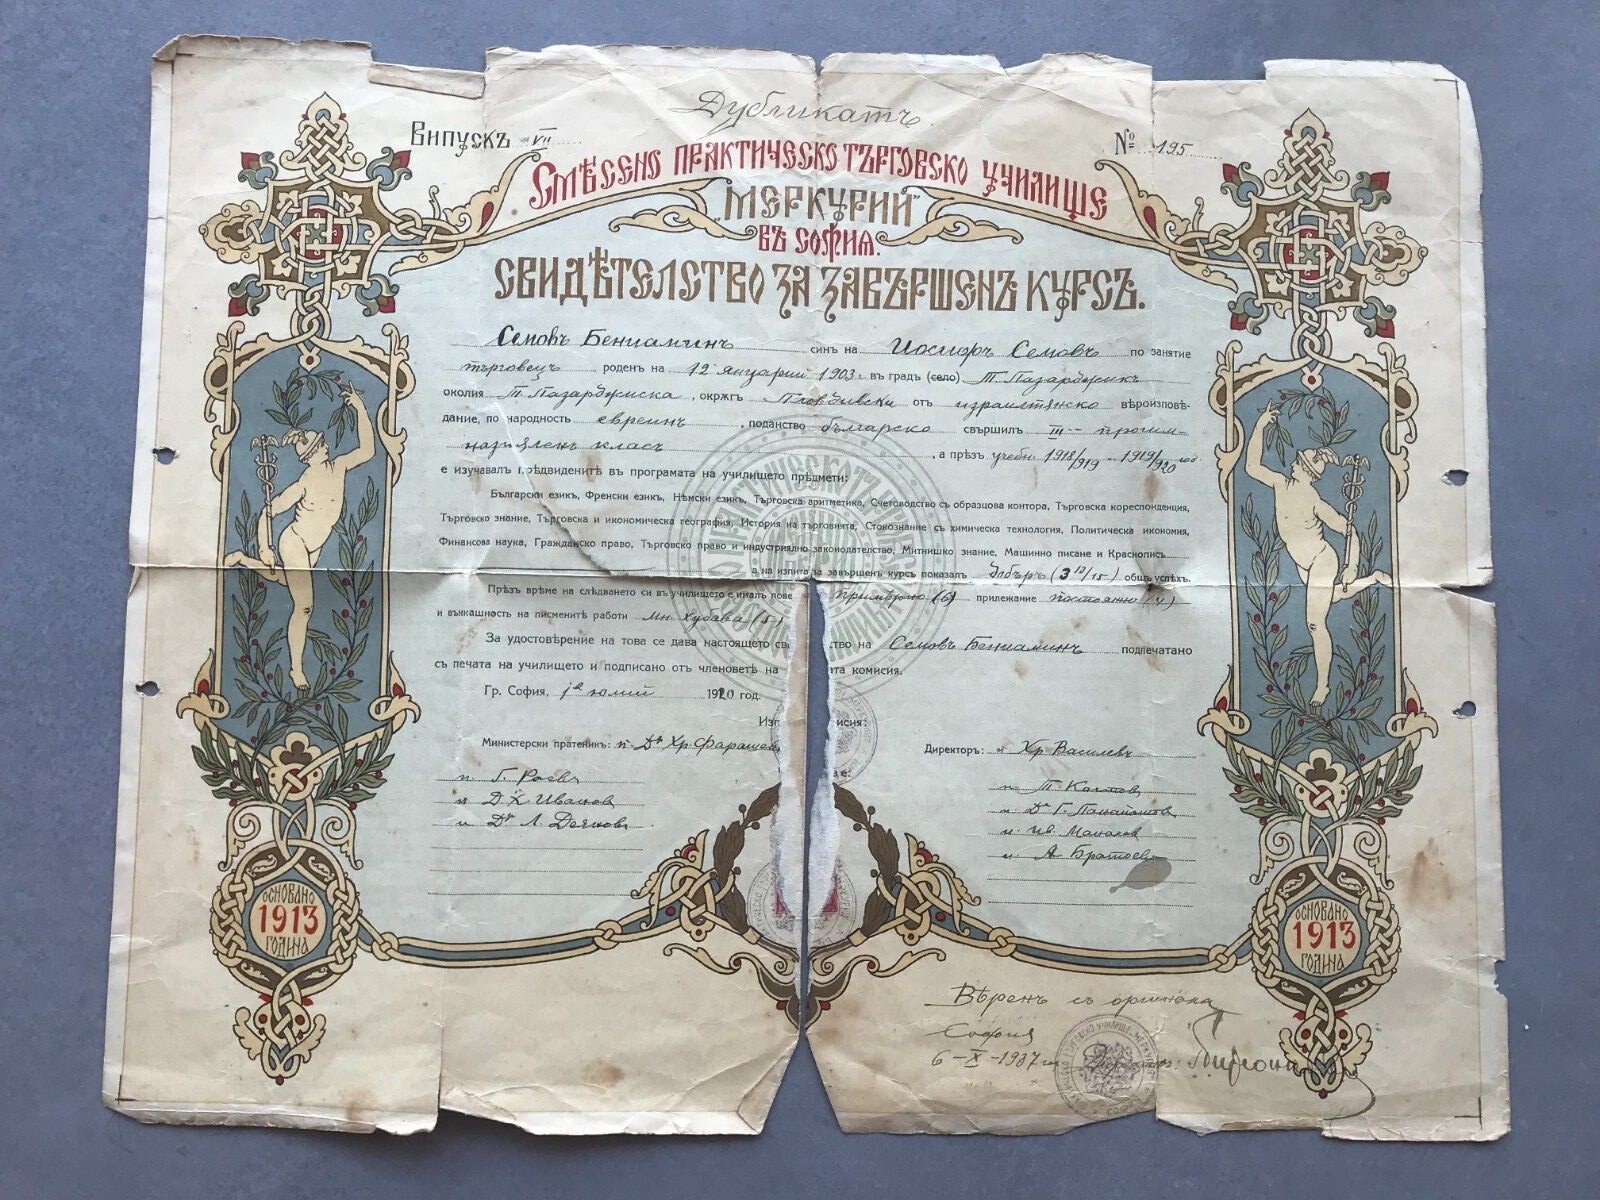 Дубликатъ.
Випускъ VII
№ 195
Смѣсено практическо търговско училище
„Меркурий“
въ София.
Свидѣтелство за завършенъ курсъ.
Семовъ Бениаминъ синъ на Иосифъ Семовъ по занятие
търговецъ роденъ на 12 януарий 1903 г. въ градъ (село) Т. Пазарджикъ
околия Т. Пазарджиска, окрѫгъ Пловдивски отъ израилтянско вѣроизповѣ-
дание, по народность евреинъ, поданство българско свършилъ III прогим-
назиаленъ класъ, а прѣзъ учебн. 1918/919 и 1919/920 год.
е изучавалъ прѣдвиденитѣ въ програмата на училището прѣдмети:
Български езикъ, Френски езикъ, Нѣмски езикъ, Търговска аритметика, Счетоводство съ образцова контора, Търговска кореспонденция,
Търговско знание, Търговска и икономическа география, История на търговията, Стокознание съ химическа технология, Политическа икономия,
Финансова наука, Гражданско право, Търговско право и индустриялно законодателство, Митнишко знание, Машинно писане и Краснописъ
а на изпита за завършенъ курсъ показалъ Добъръ (3 13/15) общъ успѣхъ.
Прѣзъ врѣме на слѣдването си въ училището е ималъ пове примѣрно (6) прилежание постоянно (4)
и външность на писменитѣ работи Мн. хубава (5)
За удостовѣрение на това се дава настоящето сви ство на Семовъ Бениаминъ подпечатано
съ печата на училището и подписано отъ членоветѣ на та комисия.
Гр. София, 1ва юлий 1920 год.
Изп исия:
Министерски пратеникъ: п. Дръ Хр. Фарашев
Директоръ: п. Хр. Василевъ
ве:
п. Г. Роевъ
п. Д. Х. Ивановъ
п. Дръ Л. Деяновъ
п. Дръ Г. Панайотовъ
п. Ив. Маналов
п. А. Братоевъ
Основано
1913
година
Основано
1913
година
Вѣренъ съ оригинала
София
6-X-1937 г. Директоръ: